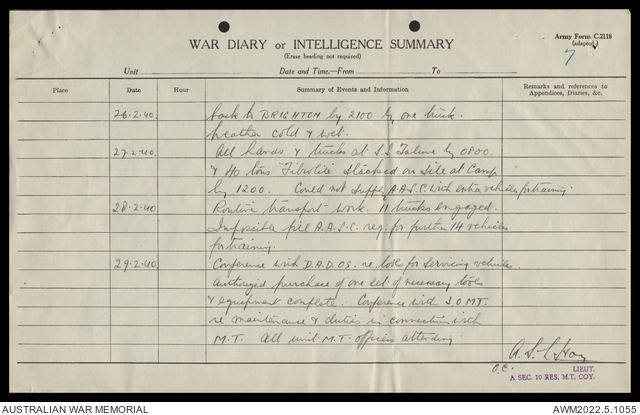 Army Form C.2118
(adapted.)
7
WAR DIARY or INTELLIGENCE SUMMARY
(Erase heading not required)
Unit Date and Time.—From To
Place Date Hour Summary of Events and Information Remarks and references to Appendices, Diaries, &c.
26.2.40. back to BRIGHTON by 2100 by one truck.
Weather cold & wet.
27.2.40. All hands & trucks at S.S Talune by 0800.
& 40 tons "Fibrolite" stacked on site at Camp
by 1200. Could not supply A.A.S.C. with entire vehicles for training.
28.2.40. Routine transport work. 11 trucks engaged.
Impossible fill A.A.S.C req. for further 14 vehicles
for training.
29.2.40. Conference with D.A.D.OS. re tools for servicing vehicles.
Authorized purchase of one set of necessary tools
& equipment complete. Conference with S.O.M.T.
re maintenance & duties in connection with
M.T. All unit M.T. officers attending.
O.C. LIEUT.
A SEC. 10 RES. M.T. COY.
AUSTRALIAN WAR MEMORIAL AWM2022.5.1055